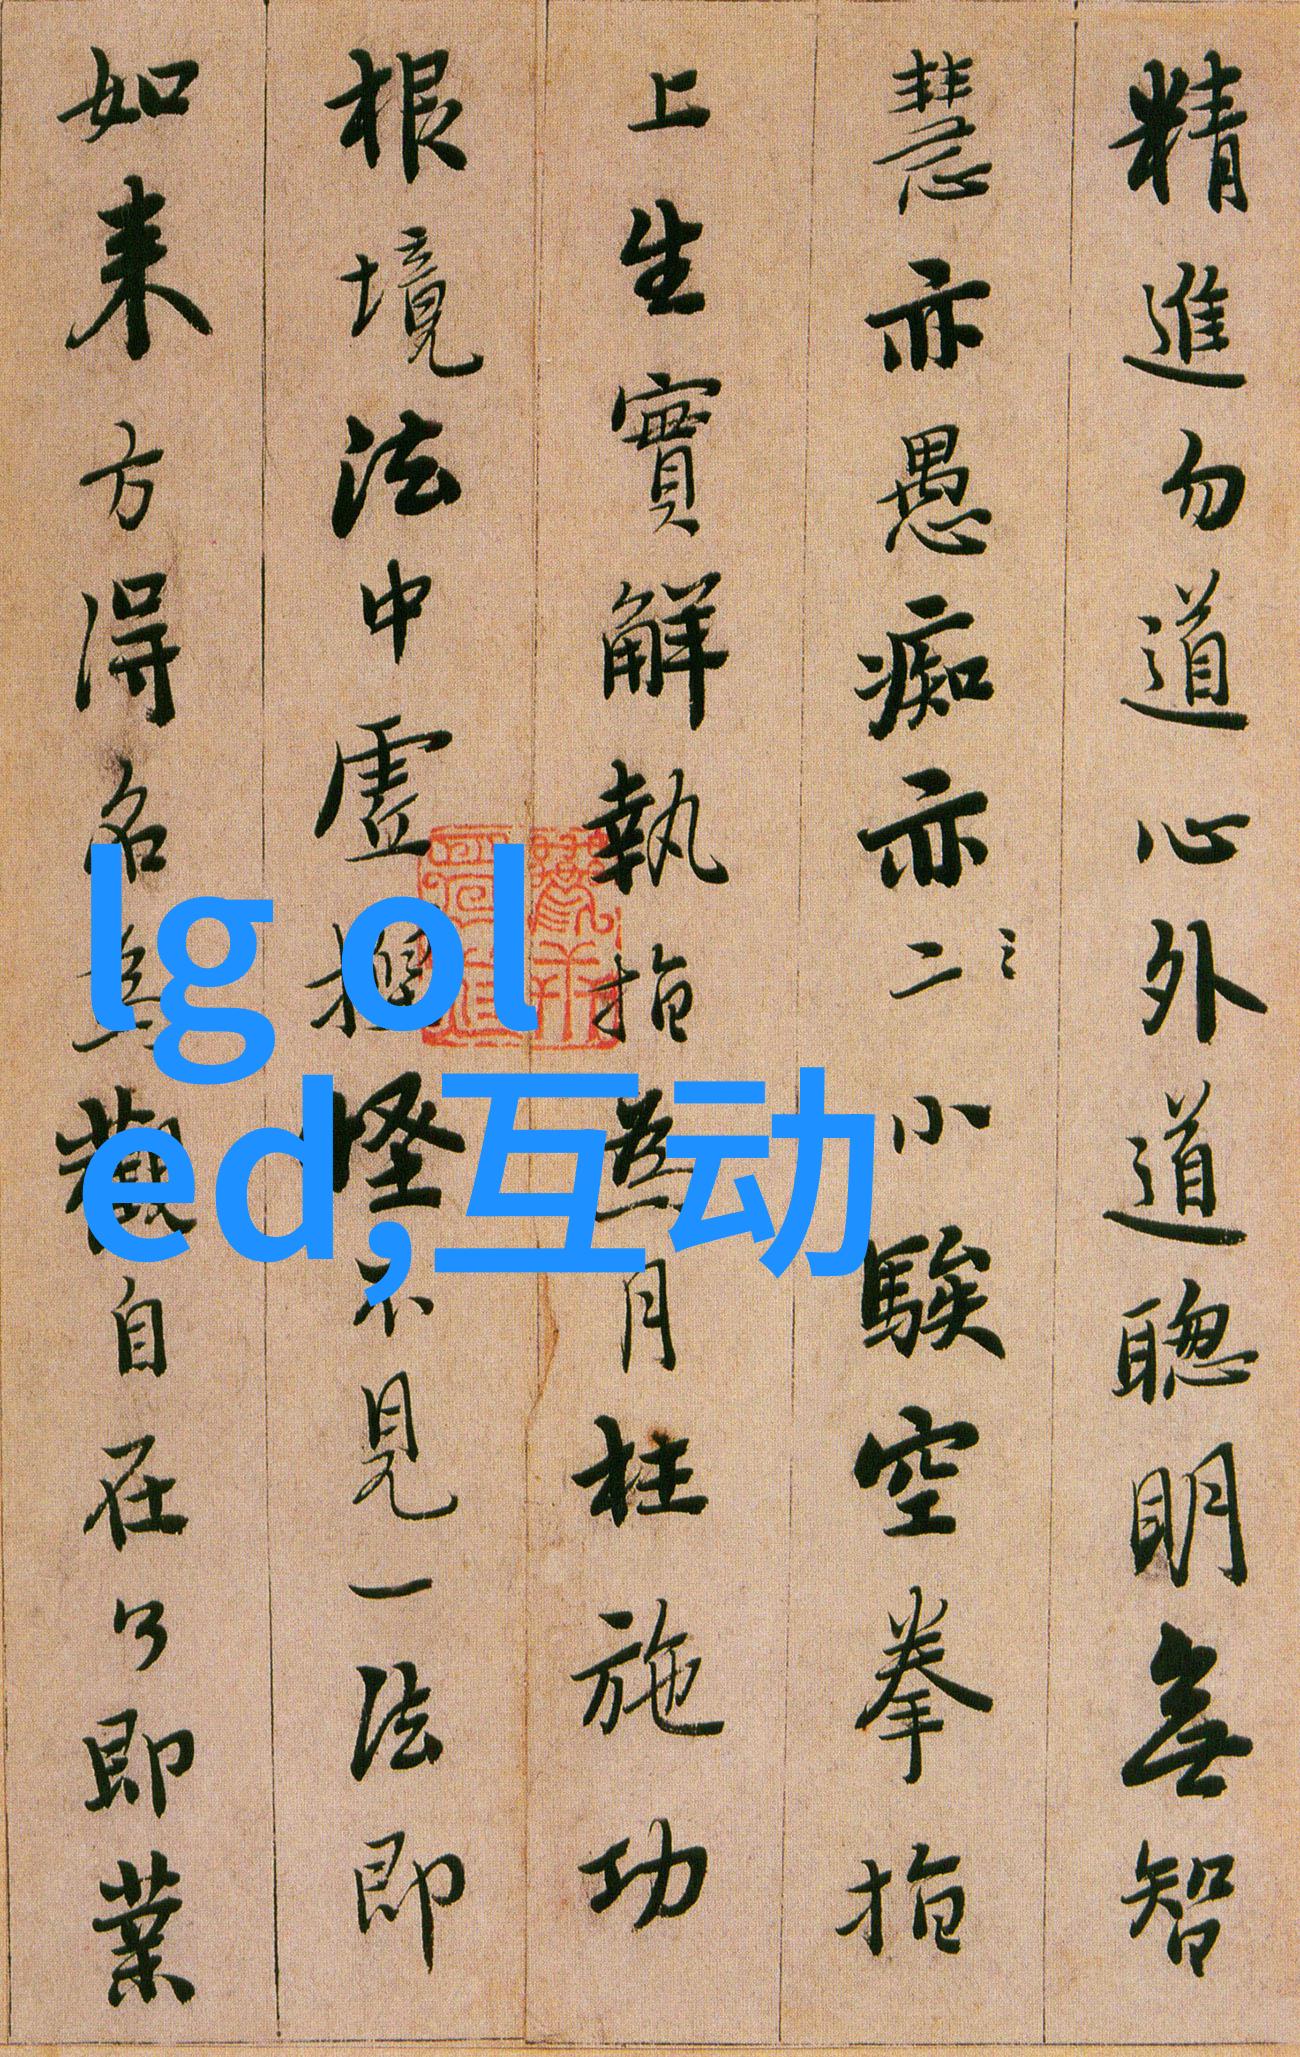 精進勿道心外道聰明無智
慧亦愚痴亦二小騃空拳指
上生實解執指為月枉施功
根境法中虛捏怪不見一法即
如來方得名為觀自在了即業
lg ol
ed,互动